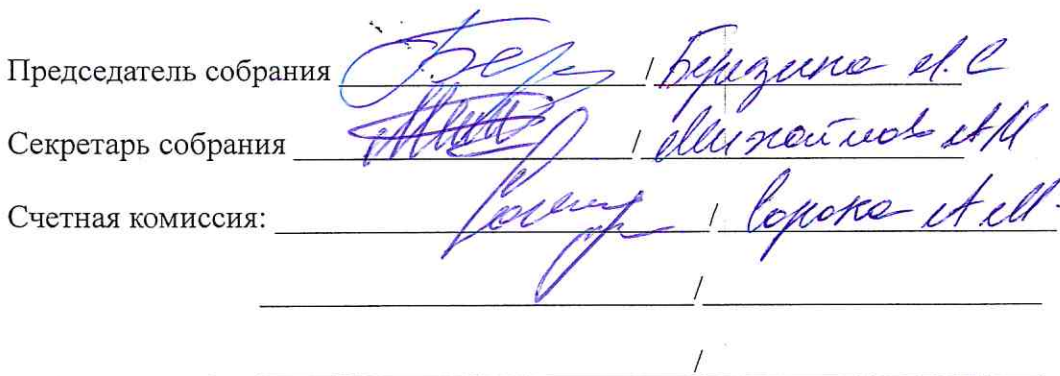 Председатель собрания / Березина М.С
Секретарь собрания / Михайлов АМ
Счетная комиссия: / Сорока А.М.
/
/